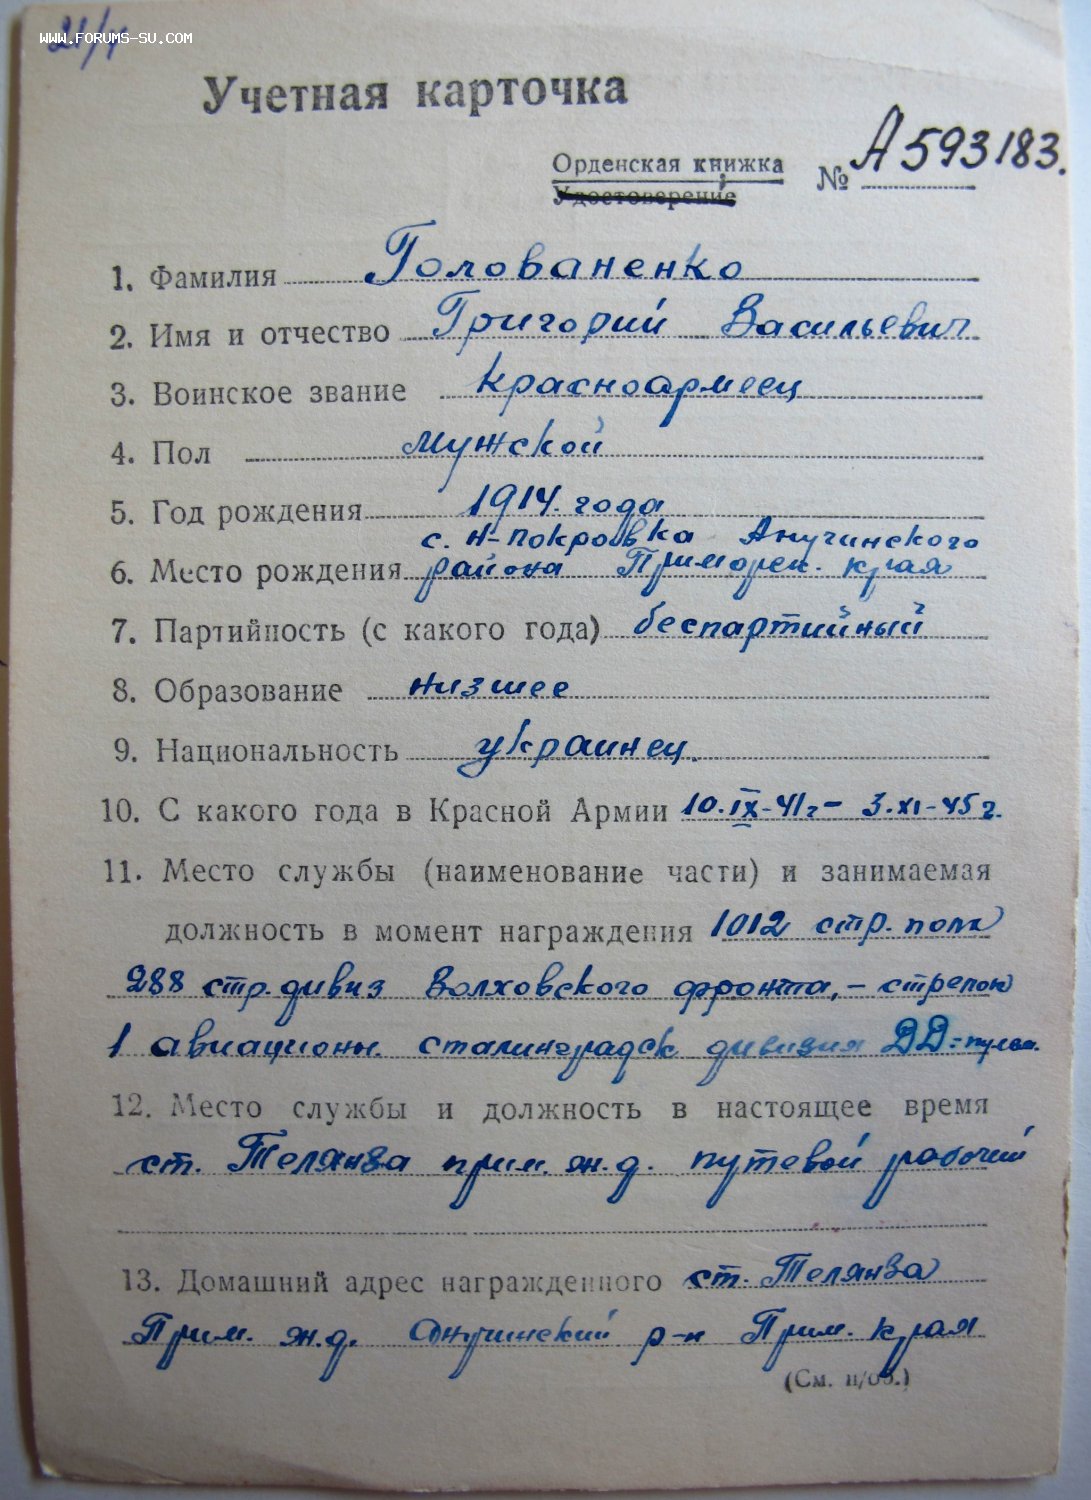 21/р
www.forums-su.com
Учетная карточка
Орденская книжка № А593183.
Удостоверение
1. Фамилия Голованенко
2. Имя и отчество Григорий Васильевич
3. Воинское звание красноармеец
4. Пол мужской
5. Год рождения 1914. года
с. Н-покровка Анучинского
6. Место рождения района Приморск. края
7. Партийность (с какого года) беспартийный
8. Образование низшее
9. Национальность украинец.
10. С какого года в Красной Армии 10.IX-41г – 3.XI-45г.
11. Место службы (наименование части) и занимаемая
должность в момент награждения 1012 стр. полк
288 стр. дивиз Волховского фронта, – стрелок
1 авиационн. сталинградск дивизия ДД
12. Место службы и должность в настоящее время
ст. Телянза прим. ж.д. путевой рабочий
13. Домашний адрес награжденного ст. Телянза
Прим. ж.д. Анучинский р-н Прим. края
(См. н/об.)